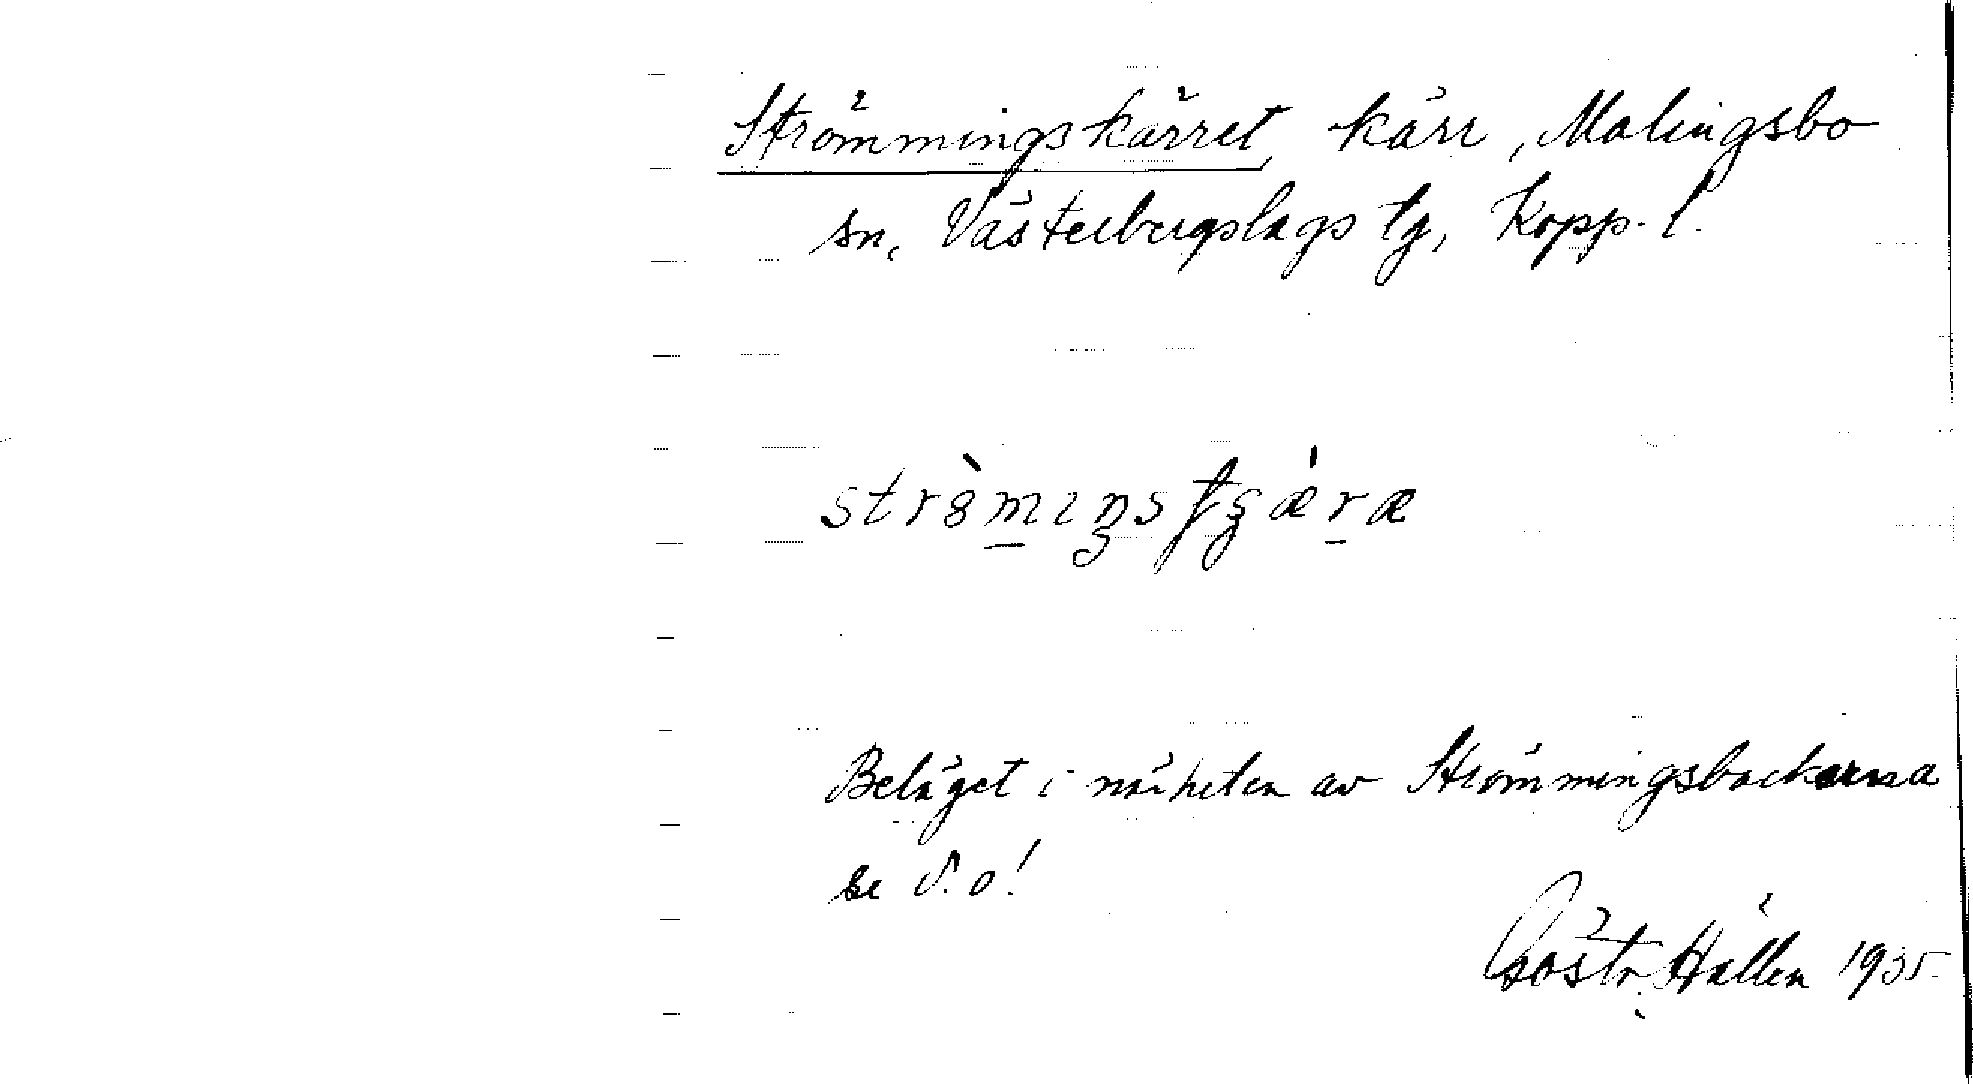 Strömmingskärret, kärr, Malingsbo
sn, Västerbergslags tg, Kopp. l.
Beläget i närheten av Strömmingsbackarna
se d. o!
Gösta Hallén 1935